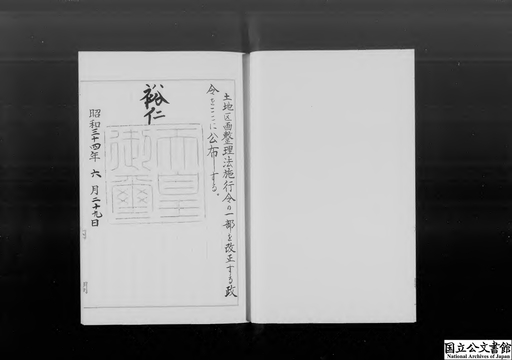 土地区画整理法施行令の一部を改正する政
令をここに公布する。
裕仁
天皇
御璽
昭和三十四年 六 月二十九日
国立公文書館
National Archives of Japan